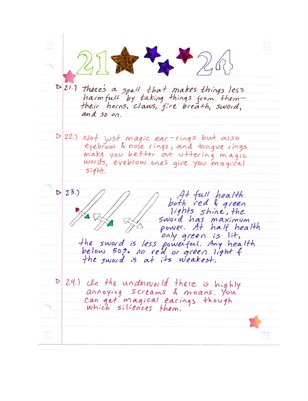 21 24
21.) There's a spell that makes things less
harmfull by taking things from them--
their horns, claws, fire breath, sword,
and so on.
22.) Not just magic ear-rings but also
eyebrow & nose rings, and tongue rings
make you better at uttering magic
words, eyebrow ones give you magical
sight.
23.) At full health
both red & green
lights shine, the
sword has maximum
power. At half health
only green is lit,
the sword is less powerful. Any health
below 50%, no red or green light &
the sword is at its weakest.
24.) In the underworld there is highly
annoying screams & moans. You
can get magical earings though
which siliences them.